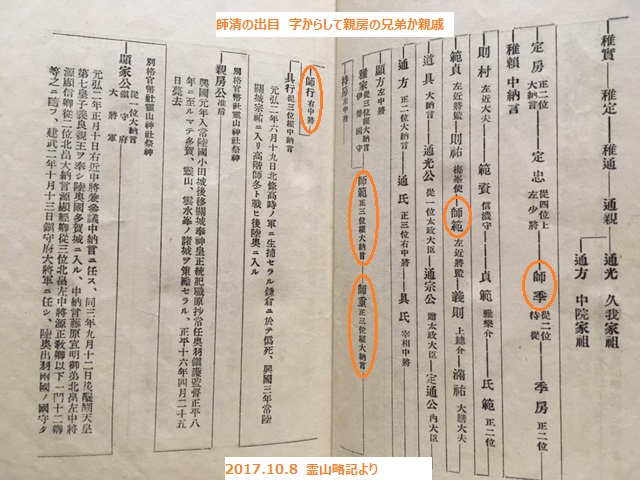 師清の出目 字からして親房の兄弟か親戚
稚實―稚定―稚通―通親
通光 久我家祖
通方 中院家祖
定房 正二位 大納言
定忠 從四位上 左少將
師季 從二位 侍從
季房 正二位
稚賴 中納言
則村 左近大夫
範資 信濃守
貞範 雅樂介
氏範 正二位
範貞 左近將監
則祐
師範 左近將監
義則 上總介
滿祐 大膳大夫
道具 大納言
通光公 從一位太政大臣
通宗公 贈太政大臣
定通公 內大臣
通方 正二位大納言
通氏 正三位右中將
具氏 宰相中將
顯方 左中將
雅家 伊勢國守
師範 正三位權大納言
師重 正三位權大納言
持房 左中將
師行 右中將
具行 從三位權中納言
元弘二年六月十九日北條高時ノ軍ニ生捕セラル鎌倉ニ於テ僞死、興國三年常陸
關城宗祐ニ入リ高階師冬ト戰ヒ後陸奧ニ入ル
別格官幣社靈山神社祭神
親房公 准后
興國元年入常陸國小田城後移關城奉神皇正統記職原抄常任奧羽鎭護監督正平八
年ニ至ルマテ多賀、靈山、雲水峯ノ諸城ヲ策勵セラル、正平十六年四月二十五
日薨去
別格官幣社靈山神社祭神
顯家公 從一位大納言 鎭守府大將軍
元弘三年正月十日右近中將兼參議中納言ニ任ス、同三年九月十二日後醍醐天皇
第七皇子義良親王ヲ奉シ陸奧國多賀城ニ入ル、中納言藤原宣明御弟北畠左中將
源顯信卿從二位北畠大納言源顯經卿從三位北畠左中將源正敎卿以下一門十二鄕
等之ニ隨フ、建武二年十月十三日鎭守府大將軍ニ任シ、陸奧出羽兩國ノ國守タ
2017.10.8 霊山略記より